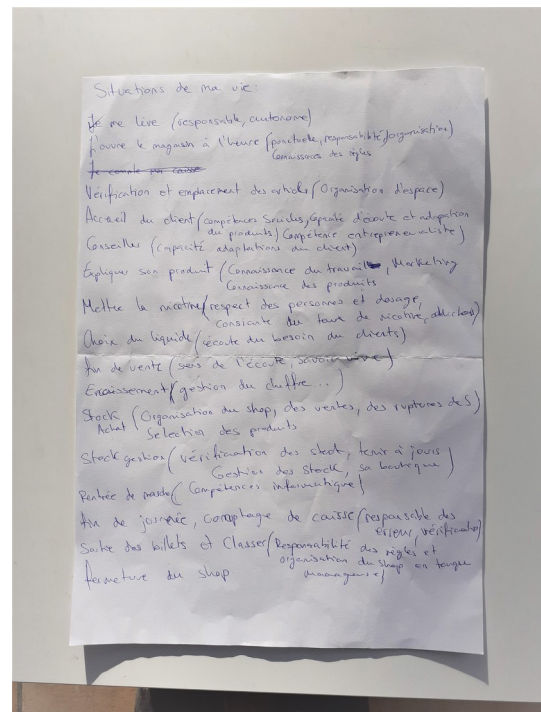 Situations de ma vie:
Je me lève (responsable, autonome)
J'ouvre le magasin à l'heure (ponctuelle, responsabilité, organisation)
Connaissance des règles
Je compte ma caisse
Vérification et emplacement des articles (Organisation d'espace)
Accueil du client (compétences Sociales, capacité d'écoute et adaption
du produits) Compétence entrepreneurialiste)
Conseiller (capacité adaptations du client)
Expliquer son produit (Connaissance du travail, Marketing
Connaissance des produits
Mettre la nicotine (respect des personnes et dosage,
consciente du taux de nicotine, addictions)
Choix du liquide (écoute du besoin du clients)
fin de vente (sens de l'écoute, savoir vivre)
Encaissement (gestion du chiffre...)
Stock (Organisation du shop, des ventes, des ruptures de S)
Achat Selection des produits
Stock gestion (vérification des stock, tenir à jours
Gestion des stock, sa boutique)
Rentrée de (Compétences informatique)
fin de journée, comptage de caisse (responsable des
erreur, vérification)
Sortie des billets et Classer (Responsabilité des règles et
organisation du shop en tenque
manageuse)
fermeture du shop